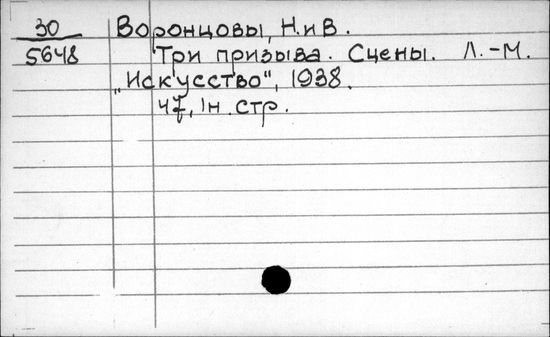 30 Воронцовы, Н. и В.
5648 Три призыва. Сцены. Л.-М.
„Искусство", 1938.
47, 1н. стр.